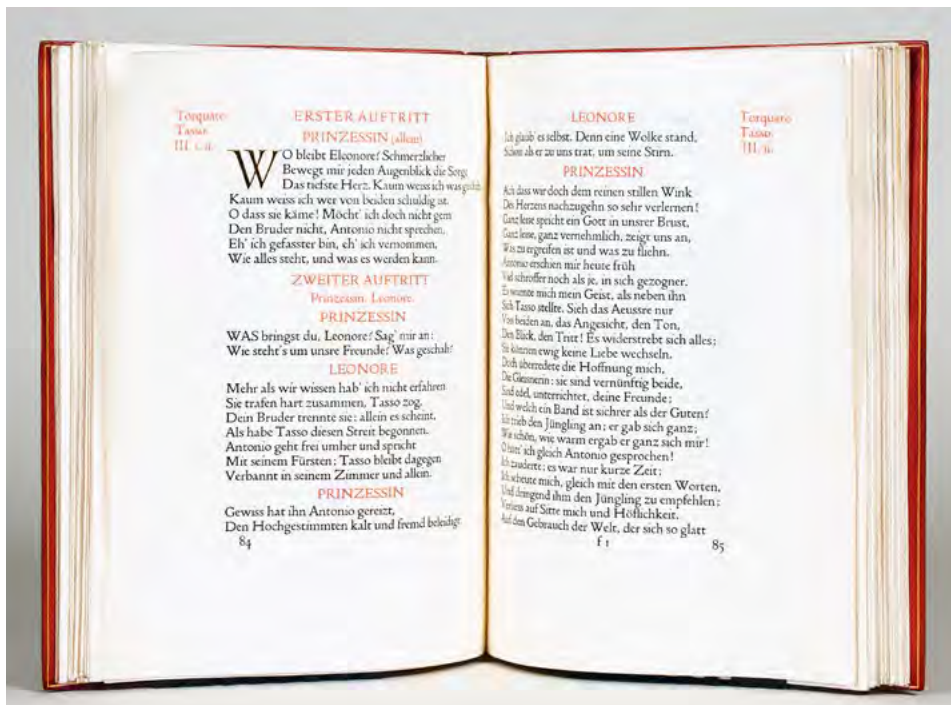 Torquato
Tasso.
III. i. ii.
ERSTER AUFTRITT
PRINZESSIN (allein)
WO bleibt Eleonore? Schmerzlicher
Bewegt mir jeden Augenblick die Sorge
Das tiefste Herz. Kaum weiss ich was geschah,
Kaum weiss ich wer von beiden schuldig ist.
O dass sie käme! Möcht' ich doch nicht gern
Den Bruder nicht, Antonio nicht sprechen,
Eh' ich gefasster bin, eh' ich vernommen,
Wie alles steht, und was es werden kann.
ZWEITER AUFTRITT
Prinzessin. Leonore.
PRINZESSIN
WAS bringst du, Leonore? Sag' mir an:
Wie steht's um unsre Freunde? Was geschah?
LEONORE
Mehr als wir wissen hab' ich nicht erfahren.
Sie trafen hart zusammen, Tasso zog,
Dein Bruder trennte sie: allein es scheint,
Als habe Tasso diesen Streit begonnen.
Antonio geht frei umher und spricht
Mit seinem Fürsten; Tasso bleibt dagegen
Verbannt in seinem Zimmer und allein.
PRINZESSIN
Gewiss hat ihn Antonio gereizt,
Den Hochgestimmten kalt und fremd beleidigt.
84
LEONORE
Ich glaub' es selbst. Denn eine Wolke stand,
Schon als er zu uns trat, um seine Stirn.
PRINZESSIN
Ach dass wir doch dem reinen stillen Wink
Des Herzens nachzugehn so sehr verlernen!
Ganz leise spricht ein Gott in unsrer Brust,
Ganz leise, ganz vernehmlich, zeigt uns an,
Was zu ergreifen ist und was zu fliehn.
Antonio erschien mir heute früh
Viel schroffer noch als je, in sich gezogner.
Es warnte mich mein Geist, als neben ihn
Sich Tasso stellte. Sieh das Aeussre nur
Von beiden an, das Angesicht, den Ton,
Den Blick, den Tritt! Es widerstrebt sich alles;
Sie können ewig keine Liebe wechseln.
Doch überredete die Hoffnung mich,
Die Gleissnerin: sie sind vernünftig beide,
Sind edel, unterrichtet, deine Freunde;
Und welch ein Band ist sichrer als der Guten?
Ich trieb den Jüngling an; er gab sich ganz;
Wie schön, wie warm ergab er ganz sich mir!
O hätt' ich gleich Antonio gesprochen!
Ich zauderte; es war nur kurze Zeit;
Ich scheute mich, gleich mit den ersten Worten,
Und dringend ihm den Jüngling zu empfehlen;
Verliess auf Sitte mich und Höflichkeit,
Auf den Gebrauch der Welt, der sich so glatt
f 1
85
Torquato
Tasso.
III. ii.